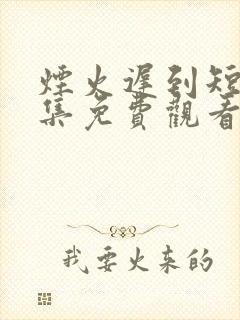 煙火遲到短
集免費觀看
我要火来的